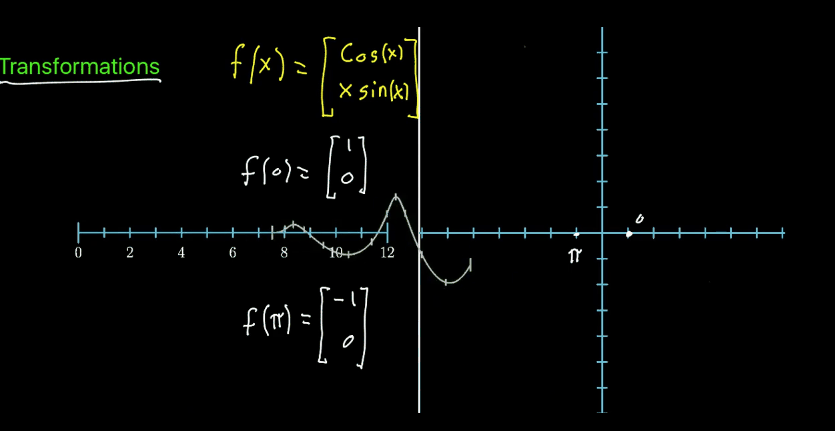 Transformations
f(x) = [cos(x)
x sin(x)]
f(0) = [1
0]
0 2 4 6 8 10 12
0
π
f(π) = [-1
0]